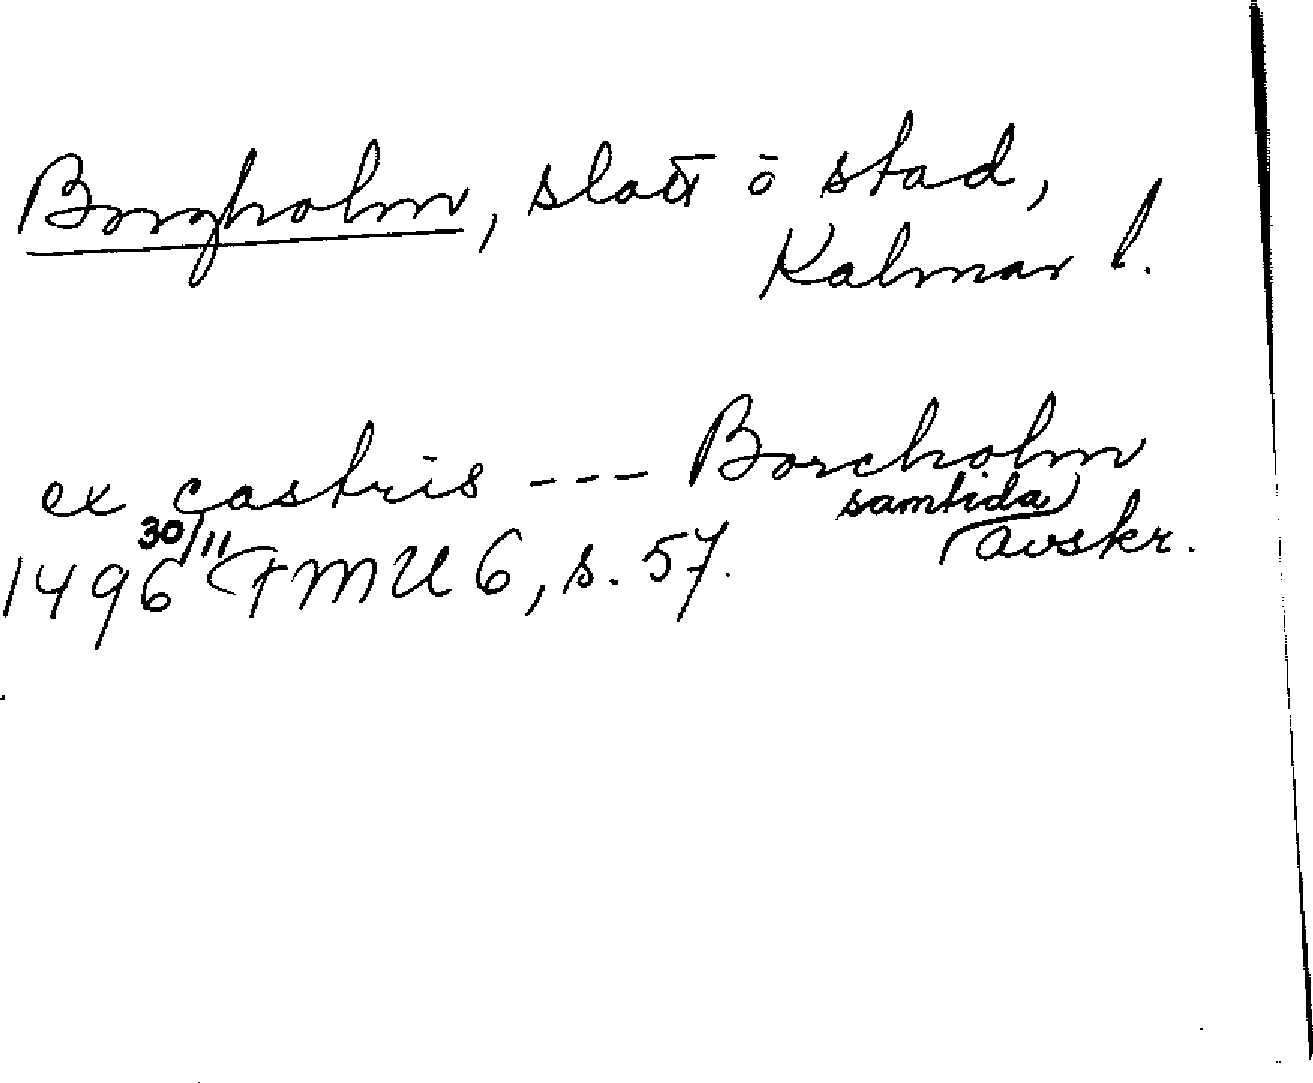 Borgholm, slott ō stad,
Kalmar l.
ex castris --- Borcholm
samtida
1496 30/11 FMU 6, s. 57. avskr.